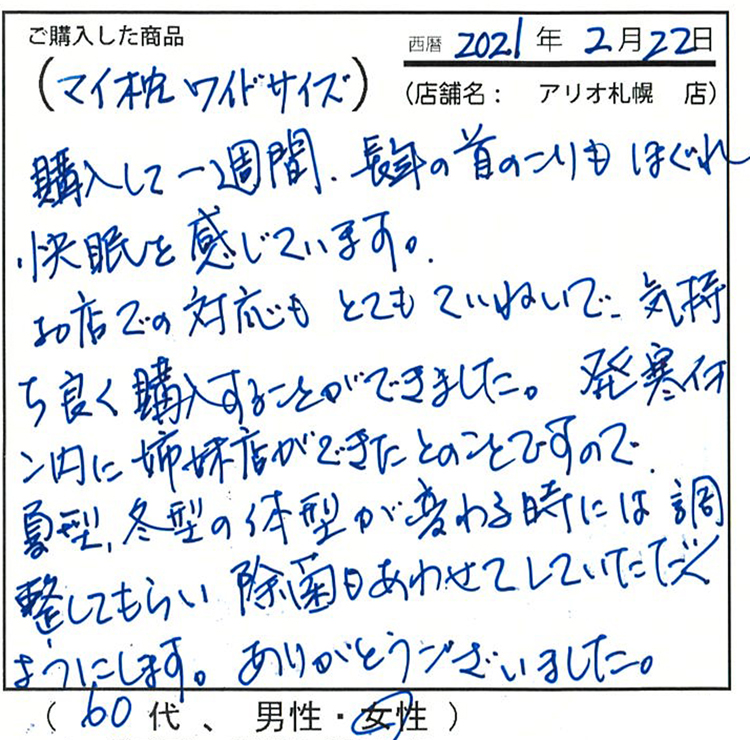 ご購入した商品
西暦 2021年 2月22日
(マイ枕 ワイドサイズ)
(店舗名： アリオ札幌 店)
購入して一週間、長年の首のこりもほぐれ
快眠を感じています。
お店での対応もとてもていねいで、気持
ち良く購入することができました。発寒イオ
ン内に姉妹店ができたとのことですので、
夏型、冬型の体型が変わる時には調
整してもらい除菌もあわせてしていただく
ようにします。ありがとうございました。
(60代、男性・女性)